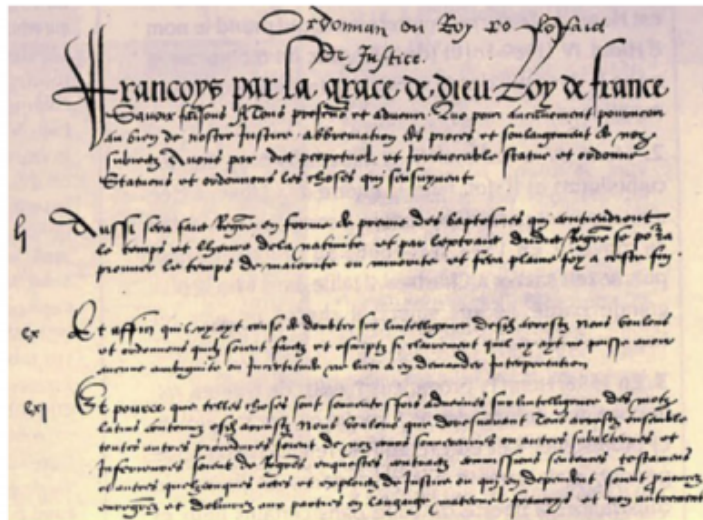 Ordonnan du Roy
De Justice.
Francoys par la grace de dieu Roy de france
Savoir faisons A tous presens et advenir Que pour aucunement pourveoir
au bien de nostre Justice abbreviation des proces et soulagement de noz
subiectz Avons par edict perpetuel et irrevocable statue et ordonne
Statuons et ordonnons les choses qui sensuyvent
li Aussi sera faict Regre en forme de preuve des baptesmes qui contiendront
le temps et lheure de la nativite et par lextraict dudict Regre se porra
prouver le temps de maiorite ou minorite et fera plaine foy a ceste fin
cx Et affin quil ny ayt cause de doubter sur lintelligence desdictz arrestz Nous voulons
et ordonnons quilz soient faictz et escriptz si clairement quil ny ayt ne puisse avoir
aucune ambiguite ou incertitude ne lieu a en demander interpretation
cxi Et pource que telles choses sont souventesfois advenues sur lintelligence des motz
latins contenuz esdictz arrestz Nous voulons que doresnavant Tous arrestz ensemble
toutes autres procedures soient de noz cours souveraines ou autres subalternes et
inferieures soient de Regres enquestes contractz commissions sentences testamens
et autres quelzconques actes et exploictz de Justice ou qui en dependent soient prononcez
enregrez et delivrez aux parties en langage maternel francoys et non autrement